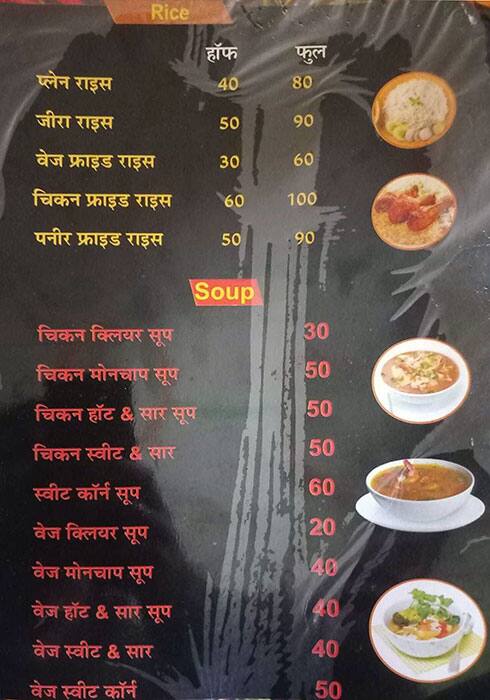 Rice
हॉफ फुल
प्लेन राइस 40 80
जीरा राइस 50 90
वेज फ्राइड राइस 30 60
चिकन फ्राइड राइस 60 100
पनीर फ्राइड राइस 50 90
Soup
चिकन क्लियर सूप 30
चिकन मोनचाप सूप 50
चिकन हॉट & सार सूप 50
चिकन स्वीट & सार 50
स्वीट कॉर्न सूप 60
वेज क्लियर सूप 20
वेज मोनचाप सूप 40
वेज हॉट & सार सूप 40
वेज स्वीट & सार 40
वेज स्वीट कॉर्न 50